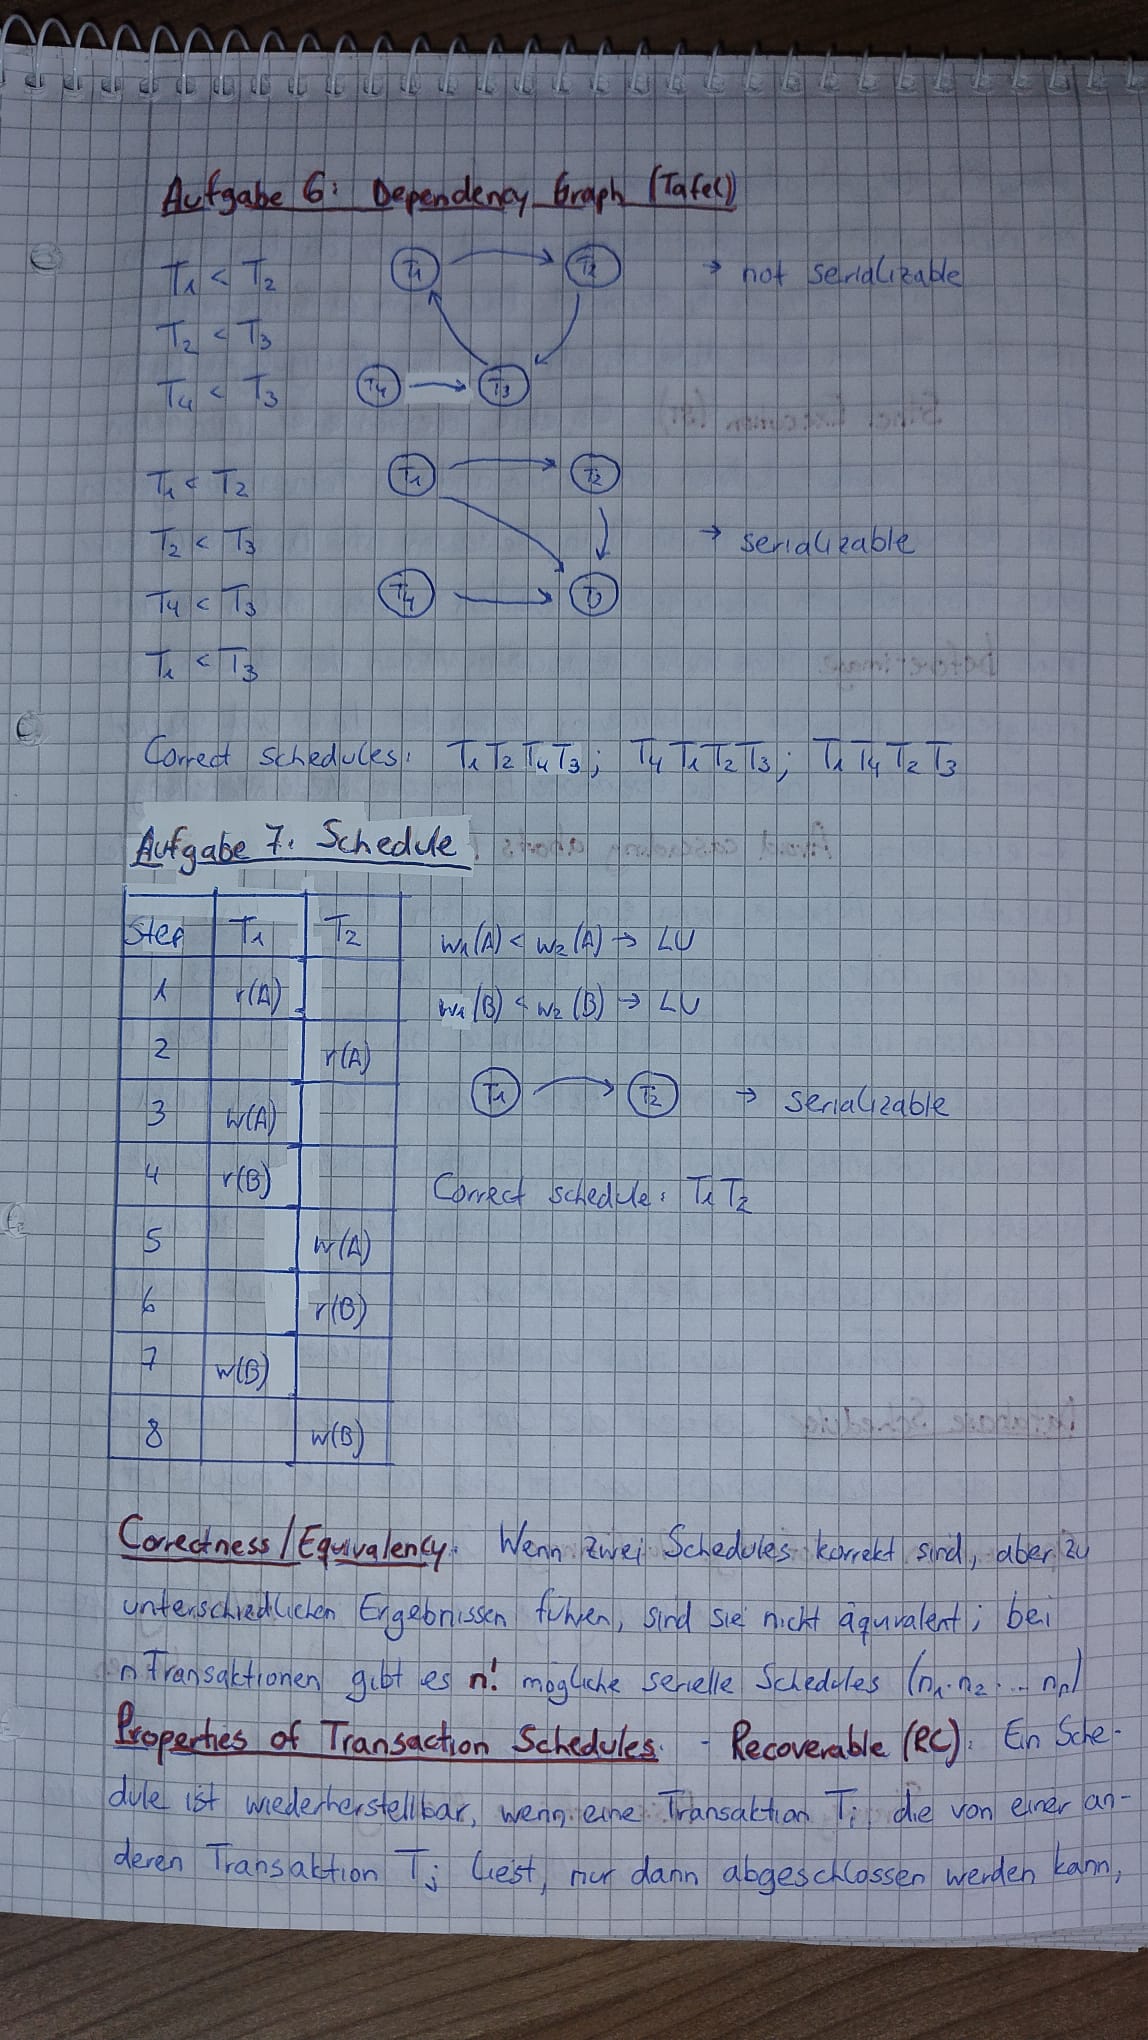 Aufgabe 6: Dependency Graph (Tafel)
T₁ < T₂ T₁ T₂ → not serializable
T₂ < T₃
T₄ < T₃ T₄ T₃
T₁ < T₂ T₁ T₂
T₂ < T₃ → serializable
T₄ < T₃ T₄ T₃
T₁ < T₃
Correct schedules: T₁ T₂ T₄ T₃; T₄ T₁ T₂ T₃; T₁ T₄ T₂ T₃
Aufgabe 7. Schedule
Step T₁ T₂
w₁(A) < w₂(A) → LU
1 r(A)
w₁(B) < w₂(B) → LU
2 r(A)
T₁ T₂ → serializable
3 w(A)
4 r(B)
Correct schedule: T₁ T₂
5 w(A)
6 r(B)
7 w(B)
8 w(B)
Correctness/Equivalency: Wenn zwei Schedules korrekt sind, aber zu
unterschiedlichen Ergebnissen führen, sind sie nicht äquivalent; bei
n Transaktionen gibt es n! mögliche serielle Schedules (n₁·n₂·...·nₙ)
Properties of Transaction Schedules: - Recoverable (RC): Ein Sche-
dule ist wiederherstellbar, wenn eine Transaktion Tᵢ, die von einer an-
deren Transaktion Tⱼ liest, nur dann abgeschlossen werden kann,